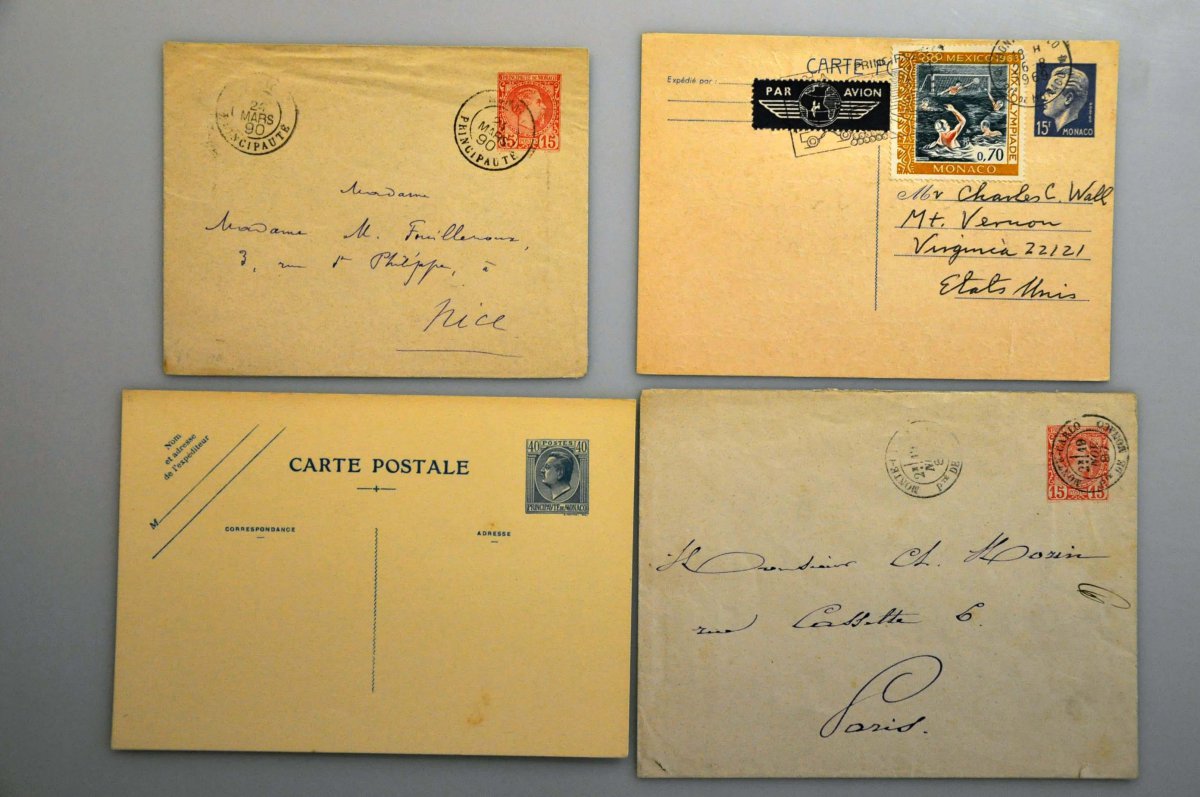 24
MARS
90
PRINCIPAUTÉ
PRINCIPAUTÉ DE MONACO
MARS
90
PRINCIPAUTÉ
15 15
Madame
Madame M.
3, rue St Philippe, à
Nice
CARTE
Expédié par :
PAR AVION
MEXICO 1968
XIXE OLYMPIADE
0,70
MONACO
15F
MONACO
Mr Charles C. Wall
Mt. Vernon
Virginia 22121
Etats Unis
Nom
et adresse
de l'expéditeur
M
CARTE POSTALE
CORRESPONDANCE
ADRESSE
40 POSTES 40
PRINCIPAUTÉ DE MONACO
MONTE-CARLO
PTE DE MONACO
15 15
Monsieur Ch. Morin
rue Cassette 6.
Paris.